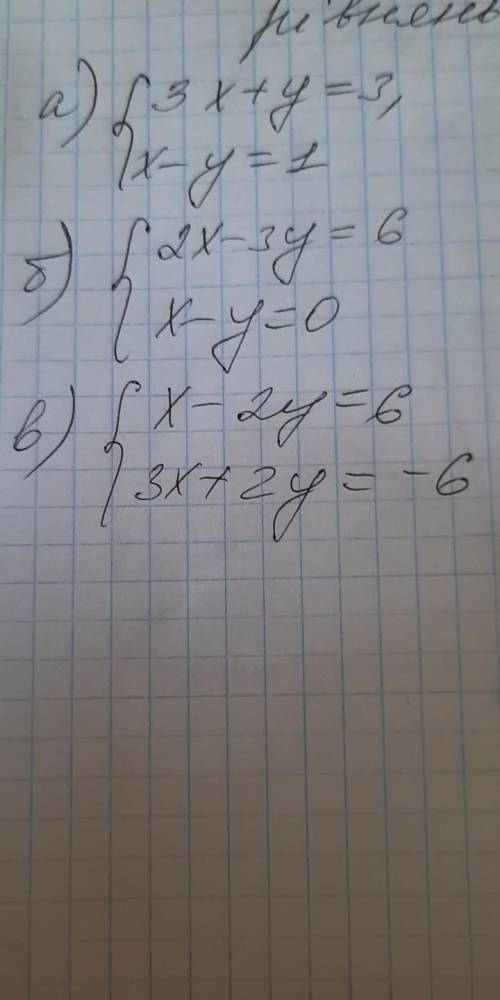 рівнянь
а) { 3x+y=3,
x-y=1
б) { 2x-3y=6
x-y=0
в) { x-2y=6
3x+2y=-6